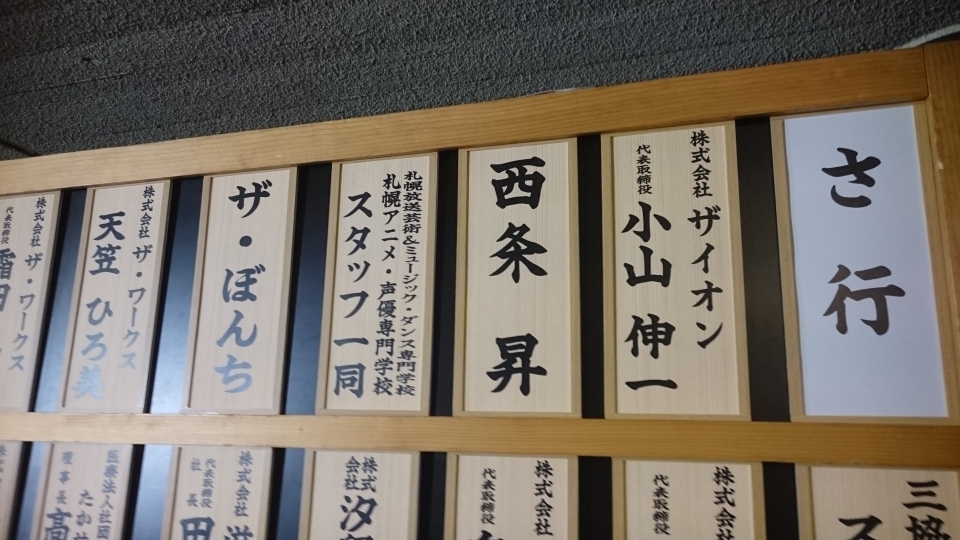 さ行
株式会社 ザイオン
代表取締役 小山 伸一
西条 昇
札幌放送芸術&ミュージック・ダンス専門学校
札幌アニメ・声優専門学校
スタッフ一同
ザ・ぼんち
株式会社 ザ・ワークス
天笠 ひろ美
株式会社 ザ・ワークス
代表取締役
三
ス
株式会社
代表取締役
株式会社
代表取締役
株式会社 汐
株式会社
代表取締役
社長
医療法人社団
たか
理事長 高